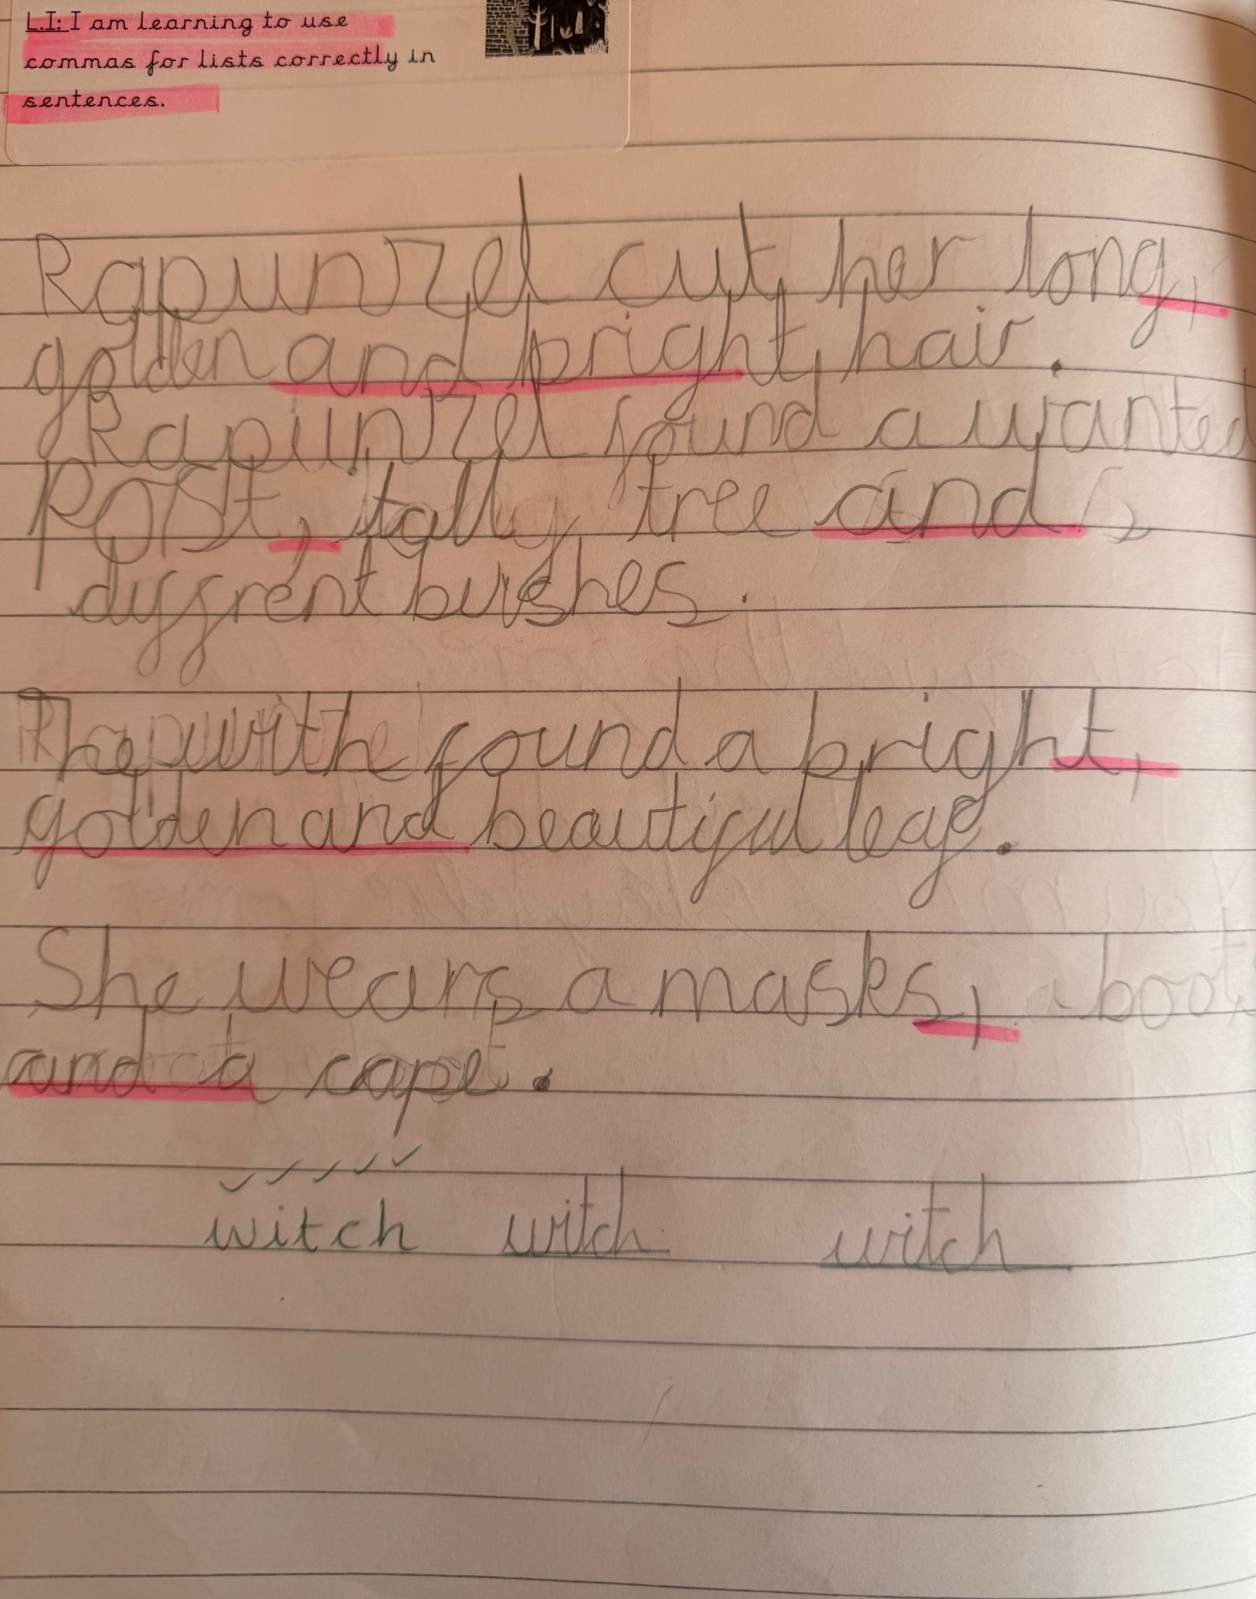 L.I: I am learning to use
commas for lists correctly in
sentences.
Rapunzel cut her long,
golden and bright, hair.
Rapunzel found a wanted
Post, tally tree and
diffrent bushes.
The withe found a bright,
golden and beautiful leaf.
She wears a masks, a boot
and a cape.
witch witch witch